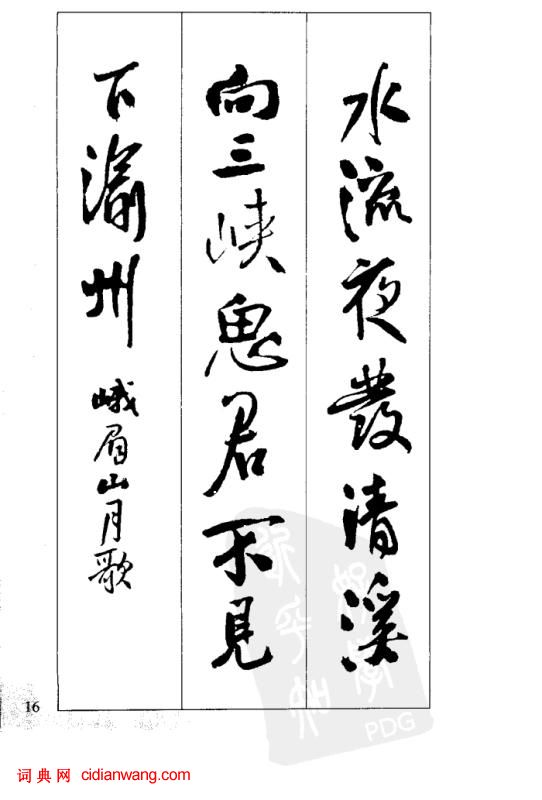 水流夜發清溪
向三峽思君不見
下渝州 峨眉山月歌
16
PDG
词典网 cidianwang.com